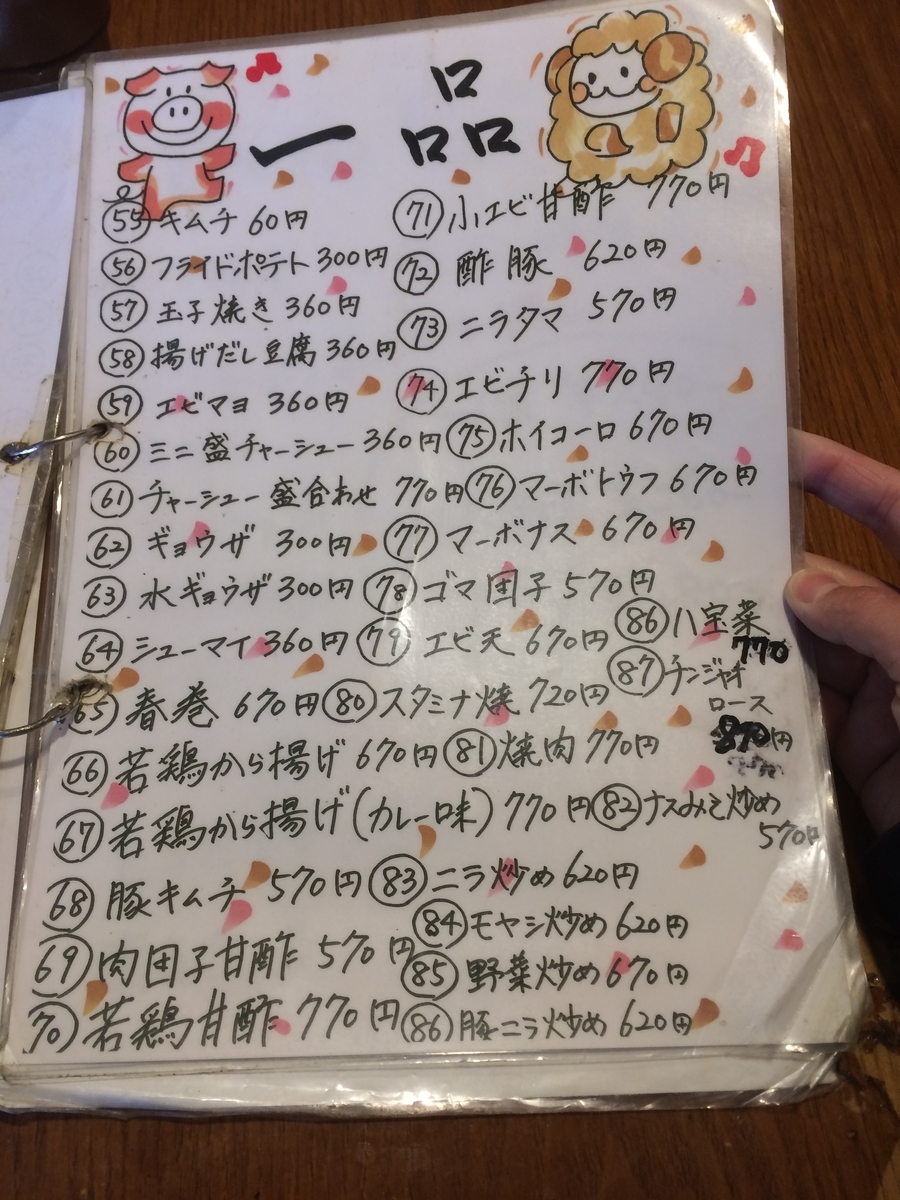 一品
55 キムチ 60円
56 フライドポテト 300円
57 玉子焼き 360円
58 揚げだし豆腐 360円
59 エビマヨ 360円
60 ミニ盛チャーシュー 360円
61 チャーシュー盛合わせ 770円
62 ギョウザ 300円
63 水ギョウザ 300円
64 シューマイ 360円
65 春巻 670円
66 若鶏から揚げ 670円
67 若鶏から揚げ(カレー味) 770円
68 豚キムチ 570円
69 肉団子甘酢 570円
70 若鶏甘酢 770円
71 小エビ甘酢 770円
72 酢豚 620円
73 ニラタマ 570円
74 エビチリ 770円
75 ホイコーロ 670円
76 マーボトウフ 670円
77 マーボナス 670円
78 ゴマ団子 570円
79 エビ天 670円
80 スタミナ焼 720円
81 焼肉 770円
82 ナスみそ炒め
570円
83 ニラ炒め 620円
84 モヤシ炒め 620円
85 野菜炒め 670円
86 豚ニラ炒め 620円
86 八宝菜
770
87 チンジャオ
ロース
870円